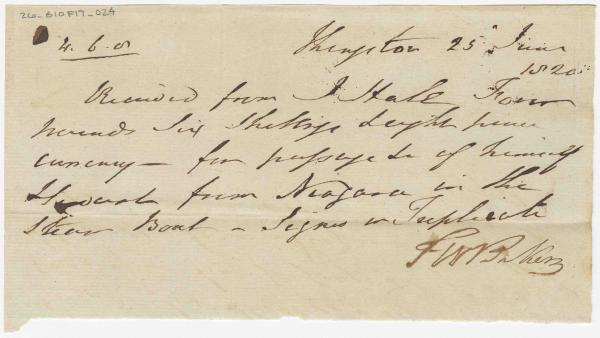 26-B10F17-024
4.6.8
Kingston 25th June
1820
Received from J Hale Four
pounds Six Shillings & eight pence
currency — for passage &c of himself
& Servant from Niagara in the
Steam Boat — Signed in Triplicate
FWBarker